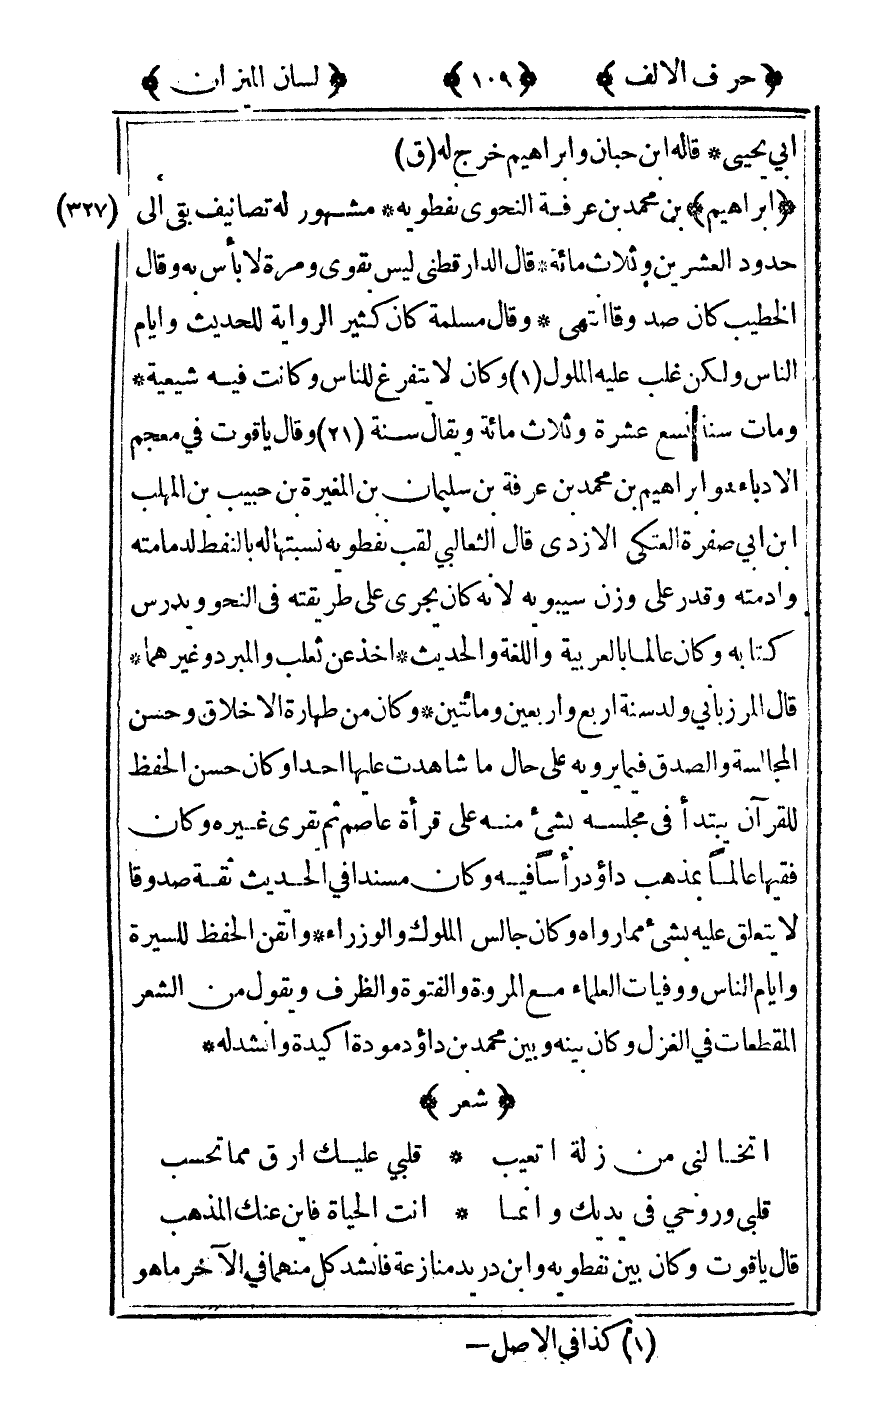 ﴿ حرف الالف ﴾ ﴿ ١٠٩ ﴾ ﴿ لسان الميزان ﴾
ابي يحيى * قاله ابن حبان وابراهيم خرج له (ق)
﴿ ابراهيم ﴾ بن محمد بن عرفة النحوى نفطويه * مشهور له تصانيف بقى الى (٣٢٧)
حدود العشرين وثلاث مائة * قال الدارقطنى ليس بقوى ومرة لا بأس به وقال
الخطيب كان صدوقا انتهى * وقال مسلمة كان كثير الرواية للحديث وايام
الناس ولكن غلب عليه الملول (١) وكان لا يتفرغ للناس وكانت فيه شيعية *
ومات سنة تسع عشرة وثلاث مائة ويقال سنة (٢١) وقال ياقوت في معجم
الادباء هو ابراهيم بن محمد بن عرفة بن سليمان بن المغيرة بن حبيب بن المهلب
ابن ابي صفرة العتكى الازدى قال الثعالبي لقب نفطويه نسبتها له بالنفط لدمامته
وادمته وقدر على وزن سيبويه لانه كان يجرى على طريقته فى النحو ويدرس
كتابه وكان عالما بالعربية واللغة والحديث * اخذ عن ثعلب والمبرد وغيرهما *
قال المرزباني ولد سنة اربع واربعين ومائتين * وكان من طهارة الاخلاق وحسن
المجالسة والصدق فيما يرويه على حال ما شاهدت عليها احدا وكان حسن الحفظ
للقرآن يبتدأ فى مجلسه بشئ منه على قرأة عاصم ثم يقرى غيره وكان
فقيها عالماً بمذهب داؤد رأساً فيه وكان مسندا في الحديث ثقة صدوقا
لا يتعلق عليه بشئ مما رواه وكان جالس الملوك والوزراء * واتقن الحفظ للسيرة
وايام الناس ووفيات العلماء مع المروة والفتوة والظرف ويقول من الشعر
المقطعات في الغزل وكان بينه وبين محمد بن داؤد مودة اكيدة وانشد له *
﴿ شعر ﴾
اتخالنى من زلة اتعيب * قلبي عليك ارق مما تحسب
قلبي وروحي فى يديك وانما * انت الحياة فاين عنك المذهب
قال ياقوت وكان بين نفطويه وابن دريد منازعة فانشد كل منهما في الآخر ما هو
(١) كذا في الاصل —